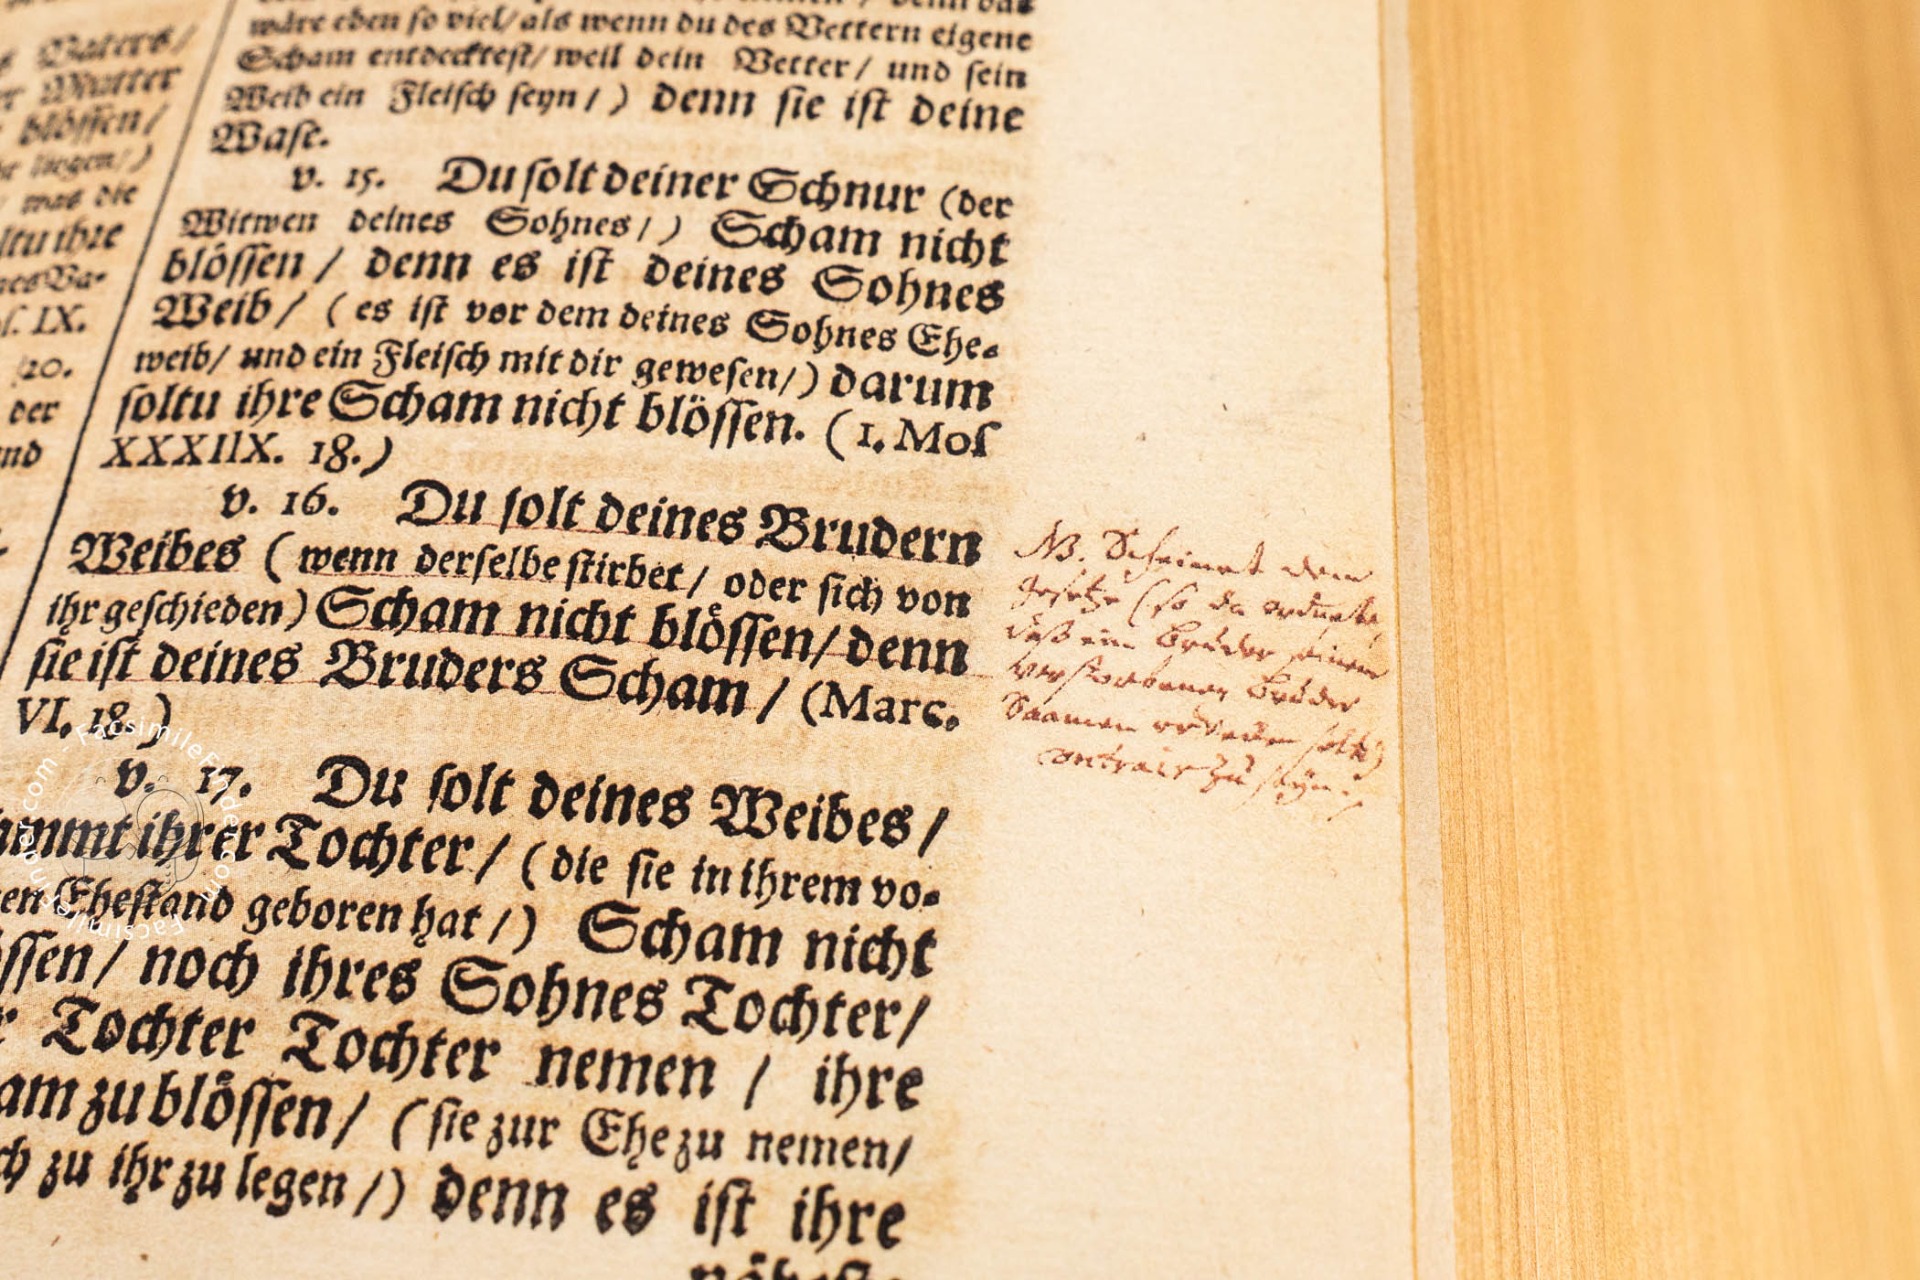 s Vaters/
er Mutter
blössen/
liegen/)
was die
soltu ihre
nes Va-
IX.
20.
der
und
wäre eben so viel/ als wenn du des Vettern eigene
Scham entdecktest/ weil dein Vetter/ und sein
Weib ein Fleisch seyn/) denn sie ist deine
Wase.
v. 15. Du solt deiner Schnur (der
Witwen deines Sohnes/) Scham nicht
blössen/ denn es ist deines Sohnes
Weib/ (es ist vor dem deines Sohnes Ehe-
weib/ und ein Fleisch mit dir gewesen/) darum
soltu ihre Scham nicht blössen. (1. Mos
XXXIIX. 18.)
v. 16. Du solt deines Brudern
Weibes (wenn derselbe stirbet/ oder sich von
ihr geschieden) Scham nicht blössen/ denn
sie ist deines Bruders Scham/ (Marc.
VI. 18.)
v. 17. Du solt deines Weibes/
sammt ihrer Tochter/ (die sie in ihrem vo-
en Ehestand geboren hat/) Scham nicht
össen/ noch ihres Sohnes Tochter/
r Tochter Tochter nemen/ ihre
am zu blössen/ (sie zur Ehe zu nemen/
ch zu ihr zu legen/) denn es ist ihre
NB. Scheinet dem
gesetze (so da ordnete,
daß ein bruder seinem
verstorbenen bruder
Saamen erweken solte)
contrair zu seyn.
FacsimileFinder.com